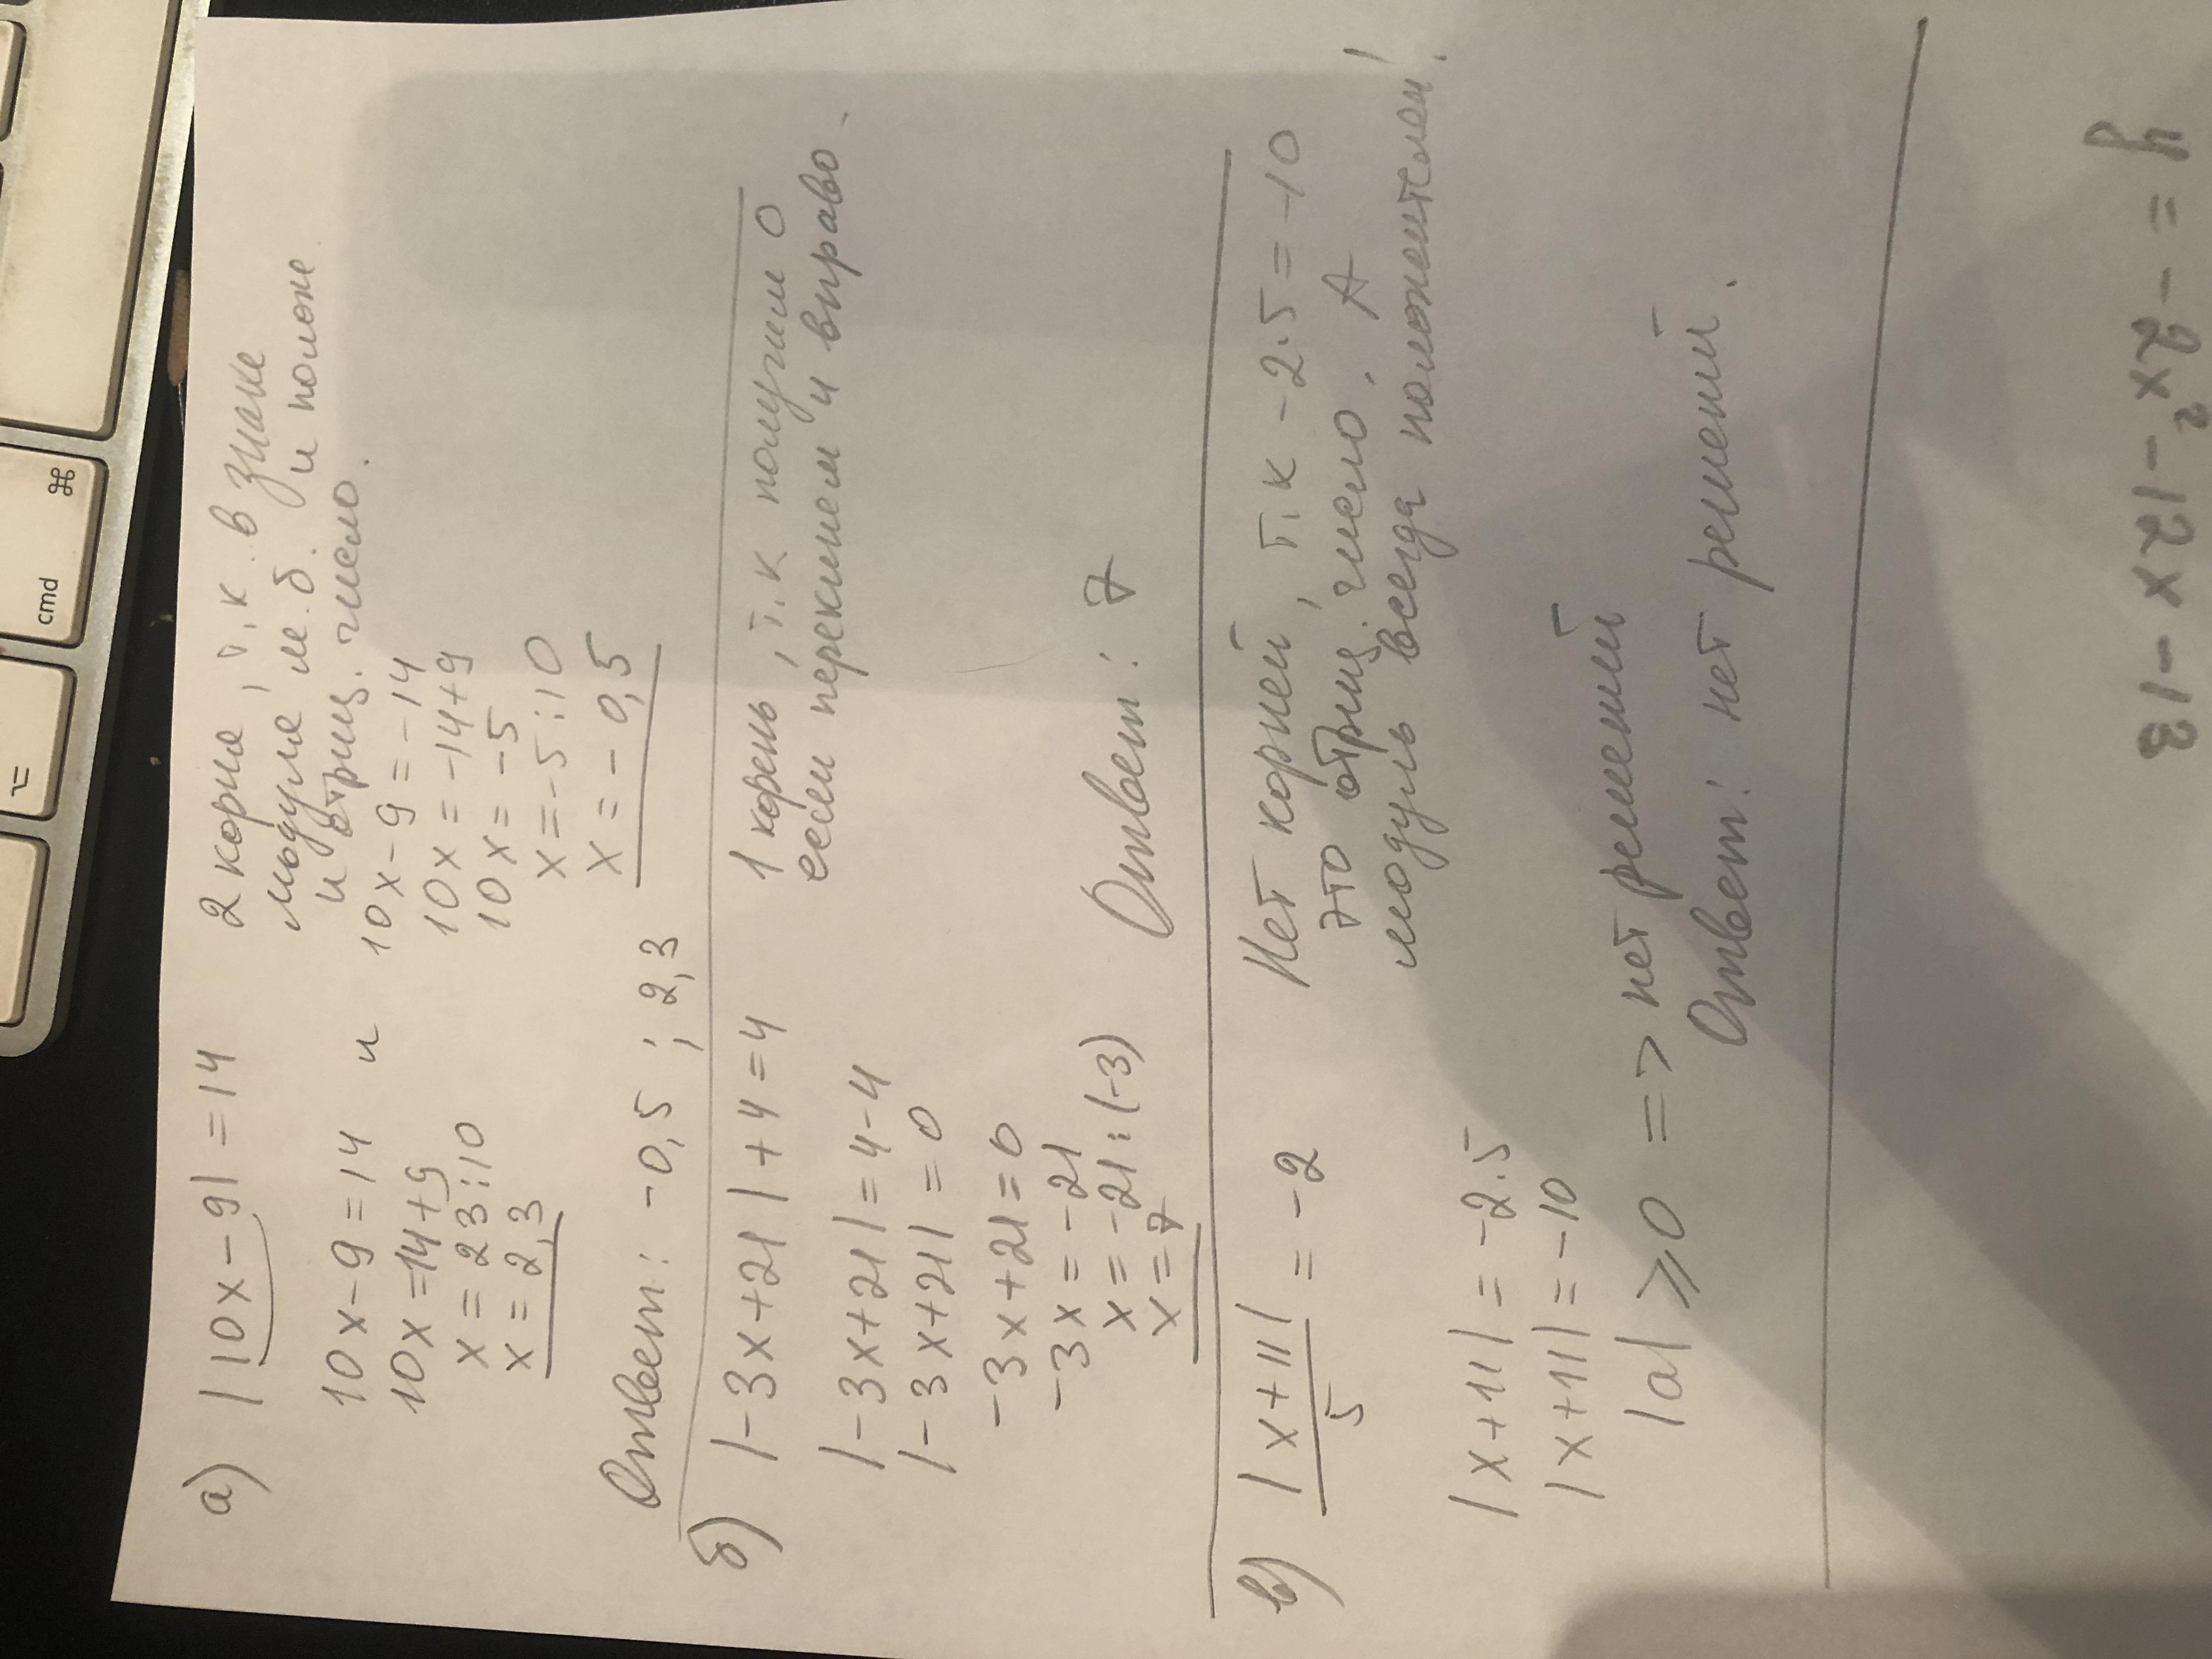 а) |10x-9|=14
2 корня, т.к. в знаке
модуля м.б. и полож
и отриц. число.
10x-9=14 и 10x-9=-14
10x=14+9
10x=-14+9
x=23:10
10x=-5
x=2,3
x=-5:10
x=-0,5
Ответ: -0,5; 2,3
б) |-3x+21|+4=4
1 корень, т.к получим 0
если перекинем 4 вправо.
|-3x+21|=4-4
|-3x+21|=0
-3x+21=0
-3x=-21
x=-21:(-3)
x=7
Ответ: 7
в) |x+11|
5
=-2
Нет корней, т.к -2·5=-10
это отриц. число. А
модуль всегда положителен!
|x+11|=-2·5
|x+11|=-10
|a|⩾0 => нет решений
Ответ: нет решений.
y=-2x²-12x-13
cmd
⌘
⌥